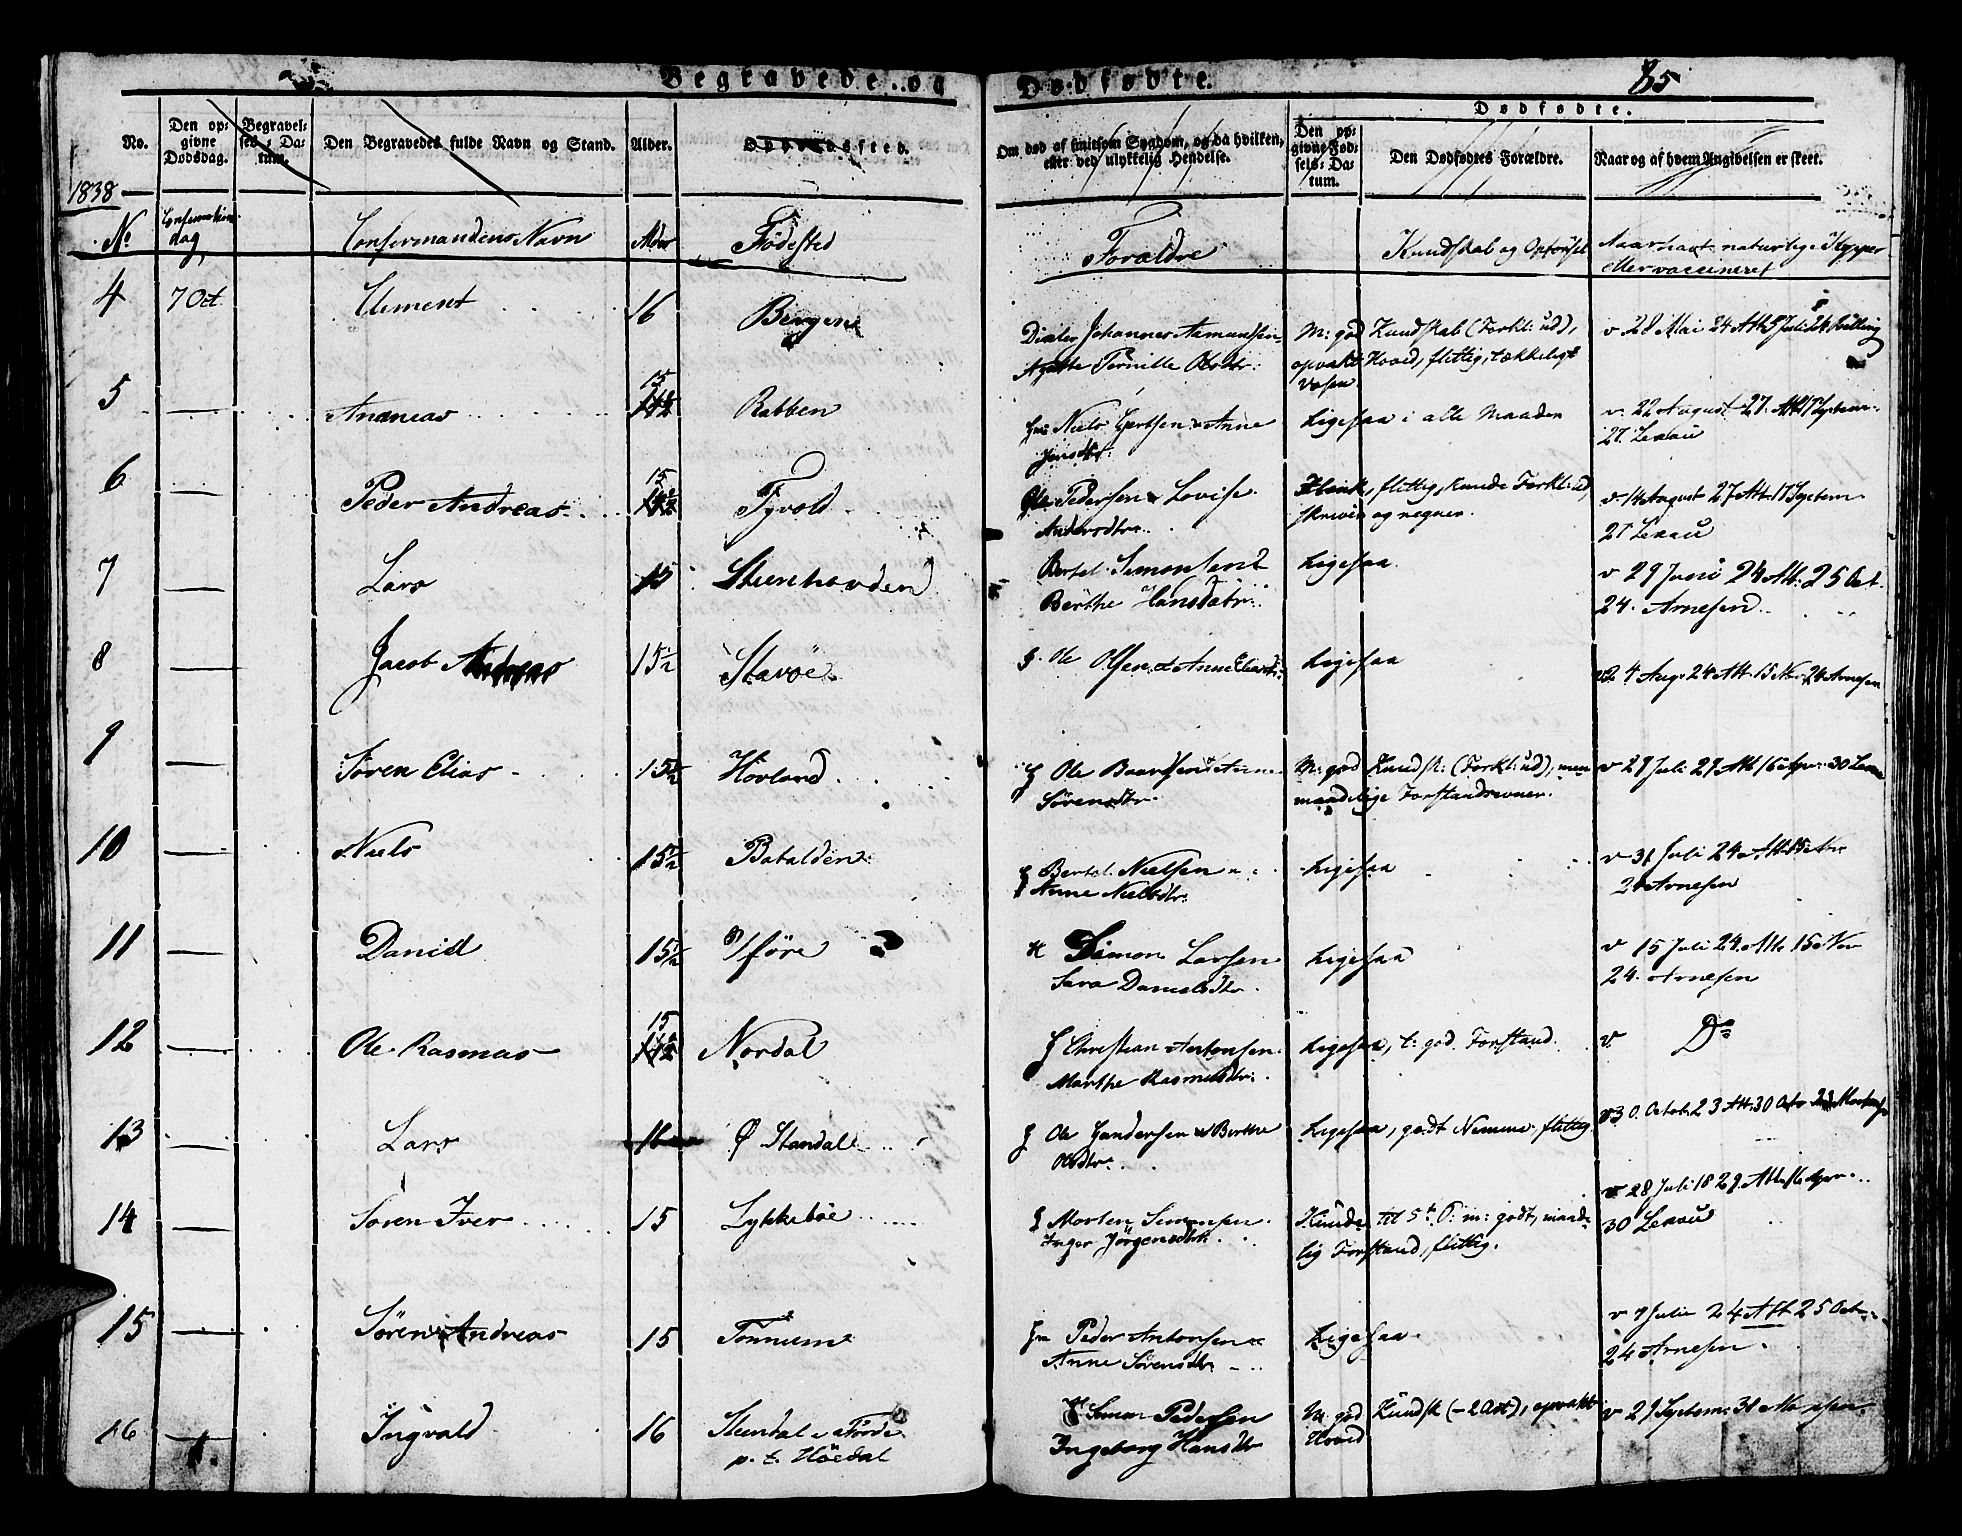 Begravede og Dødfødte.
85
No.
Den opgivne Dødsdag.
Begravelses-Datum.
Den Begravedes fulde Navn og Stand.
Alder.
Om død af smitsom Sygdom, og da hvilken, eller ved ulykkelig Hendelse.
Dødfødte.
Den opgivne Fødsels-Datum.
Den Dødfødtes Forældre.
Naar og af hvem Angivelsen er skeet.
1838
No Confirmations dag Confirmandens Navn Alder Fødested Forældre Kundskab og Opførsel Naar havt naturlige Kopper eller vaccineret
4 7 Oct Clement 16 Bergen
Johannes Asmundsen
Agathe Pernille Olsdtr:
M: god Kundskab (Forkl: ud),
opvakt Hoved, flittig, tækkeligt
Væsen
v 28 Mai 24 Att
5 — Andreas 15 Rabben
Niels Gjertsen & Anne
Jensdtr
Ligesaa i alle Maader
v. 22 August 27. Att 17 Septem
27 Lexau
6 — Peder Andreas 15 Tyvold
Ole Pedersen & Lovise
Andersdtr
Flink, flittig, kunde Forkl: ud,
skriver og regner.
v 14 August 27 Att 17 Septem
27 Lexau
7 — Lars 15 Steenhovden
Bertel Simonsen &
Berthe Hansdatr
Ligesaa.
v 29 Juni 24 Att: 25 Oct
24. Arnesen
8 — Jacob Andreas 15½ Stavøe
g. Ole Olsen & Anne
Ligesaa
4 Aug. 24 Att. 15 Nov 24 Arnesen
9 — Søren Elias 15½ Hovland
g Ole Baardsen & Anne
Sørensdtr.
M: god Kundsk: (Forkl: ud),
maadelige Forstandsevner.
v 29 Juli 29 Att 16 30 Lexau
10 — Niels 15½ Batalden
g Bertel Nielsen
Anne Nielsdtr:
Ligesaa
v 31 Juli 24 Att 15 Nov
24 Arnesen
11 — Daniel 15½
Simon Larsen
Sara Danielsdtr.
Ligesaa
v 15 Juli 24 Att 15 Nov
24. Arnesen
12 — Ole Rasmus 15 Nordal
g Christian Antonsen
Marthe Rasmusdtr.
Ligesaa, t: god Forstand.
v. Do
13 — Lars 16 Ø Standal
g Ole Gundersen & Berthe
Olsdtr.
Ligesaa, godt Nemme, flittig
v 30. Octob. 23 Att. 30 Octr
14 — Søren Iver 15 Lykkebøe
g Morten Simonsen
Inger Jörgensdtr.
Kunde til 5te P: m: godt, maade
lig Forstand, flittig.
v 28 Juli 1829 Att
30 Lexau
15 — Søren Andreas 15 Tonnum
Peder Antonsen &
Anne Sørensdtr
Ligesaa.
v 7 Julie 24 Att 25 Octr
24 Arnesen
16 — Ingvald 16 Steendal i Førde
p. t. Høedal
Simon Pedersen
Ingeborg Hansdtr
M: god Kundsk (-2 Art), opvakt
Hoved
v 29 Septem: 31